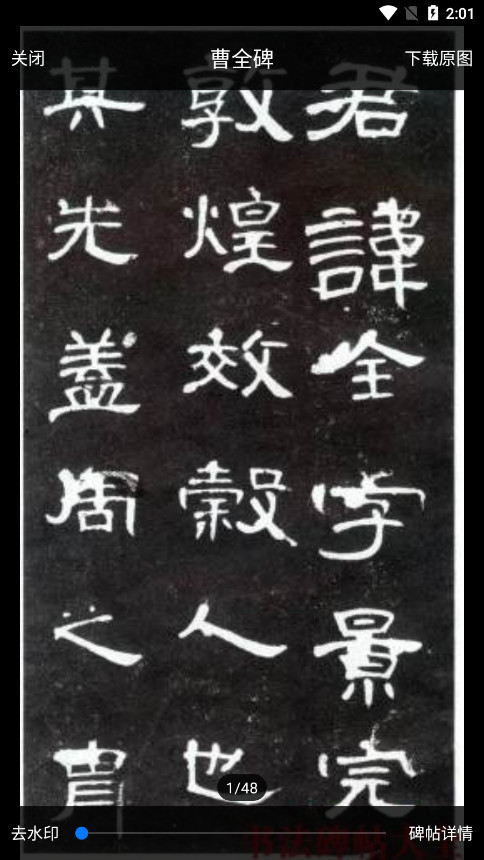 2:01
关闭
曹全碑
下载原图
君諱全字景完
敦煌效穀人也
其先蓋周之胄
1/48
去水印
碑帖详情